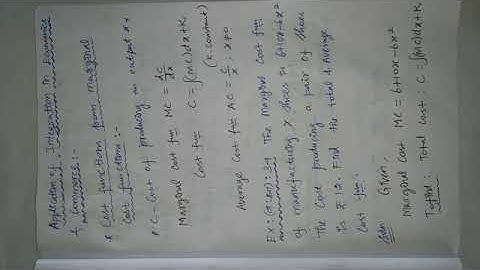 Application of Integration in Economics
& Commerce :-
* Cost functions from marginal
cost functions :-
C - Cost of producing an output x,
Marginal cost fun MC = dC/dx
Cost fun C = ∫(MC)dx + K,
(K constant)
Average cost fun AC = C/x ; x≠0
Ex: 3.1 The marginal cost fun
of manufacturing x shoes is 6+10x-6x²
The cost producing a pair of shoes
is ₹ 12. Find the total & Average
cost fun.
Soln Given,
Marginal cost MC = 6+10x-6x²
Total cost : C = ∫(MC)dx+K